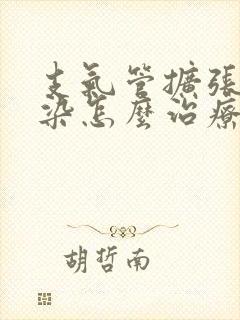 支氣管擴張
染怎麼治療
胡哲南